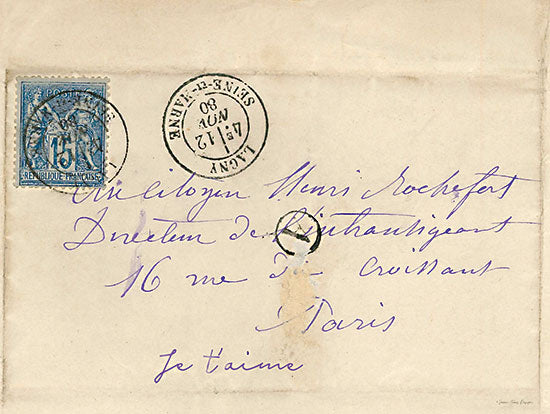 POSTES
15
REPUBLIQUE FRANÇAISE
LAGNY
SEINE-ET-MARNE
4E 12
NOV
80
Au Citoyen Henri Rochefort
Directeur de L'intransigeant
16 rue du Croissant
Paris
Je t'aime